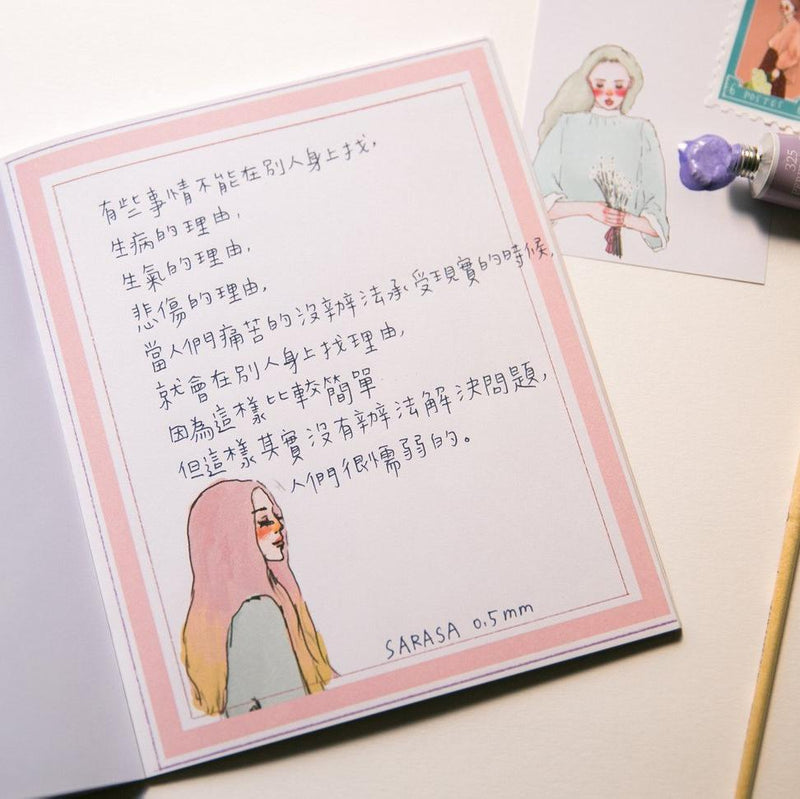 有些事情不能在別人身上找,
生病的理由,
生氣的理由,
悲傷的理由,
當人們痛苦的沒辦法承受現實的時候,
就會在別人身上找理由,
因為這樣比較簡單
但這樣其實沒有辦法解決問題,
人們很懦弱的。
SARASA 0.5mm
6 POSTES
325